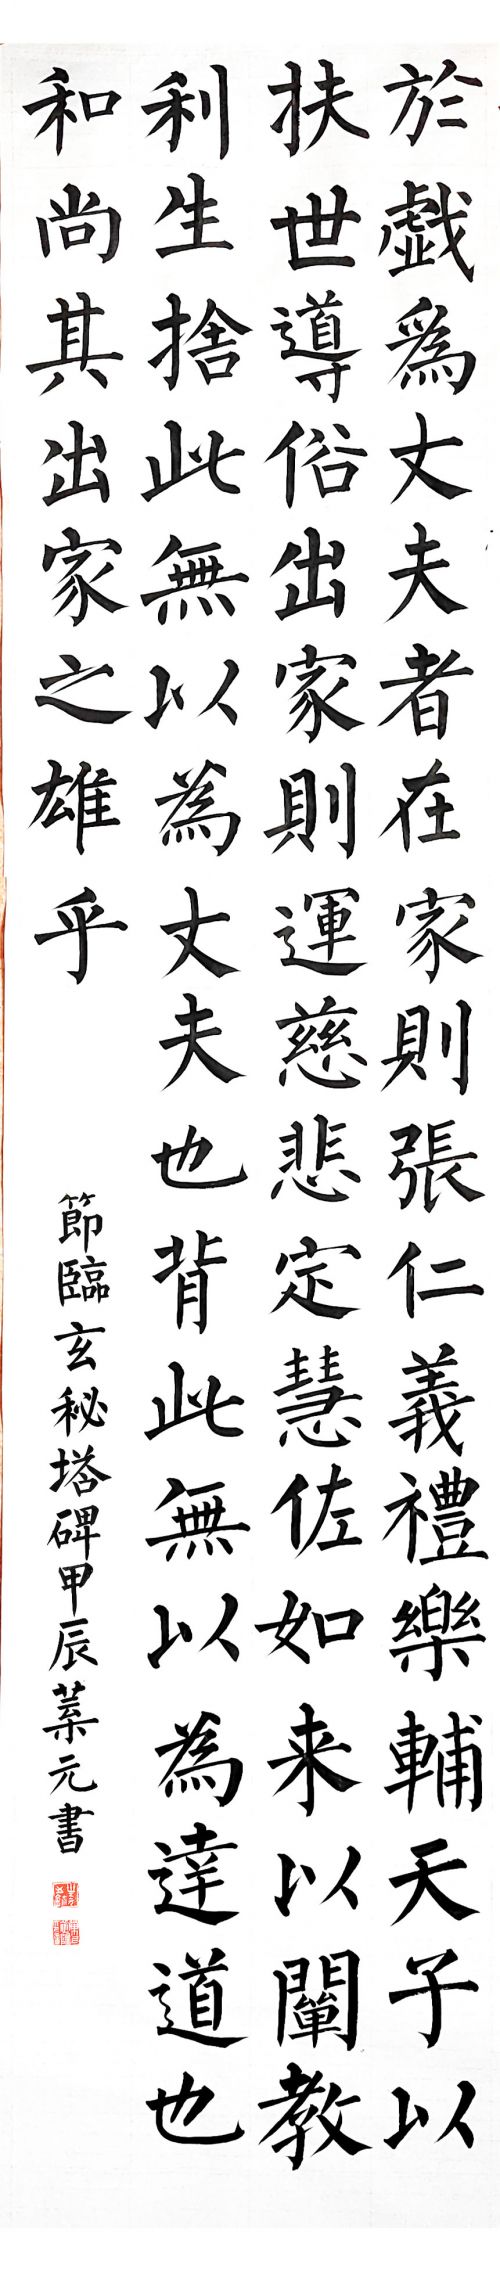 於戯為丈夫者在家則張仁義禮樂輔天子以
扶世導俗出家則運慈悲定慧佐如来以闡教
利生捨此無以為丈夫也背此無以為達道也
和尚其出家之雄乎
節臨玄秘塔碑甲辰葉元書